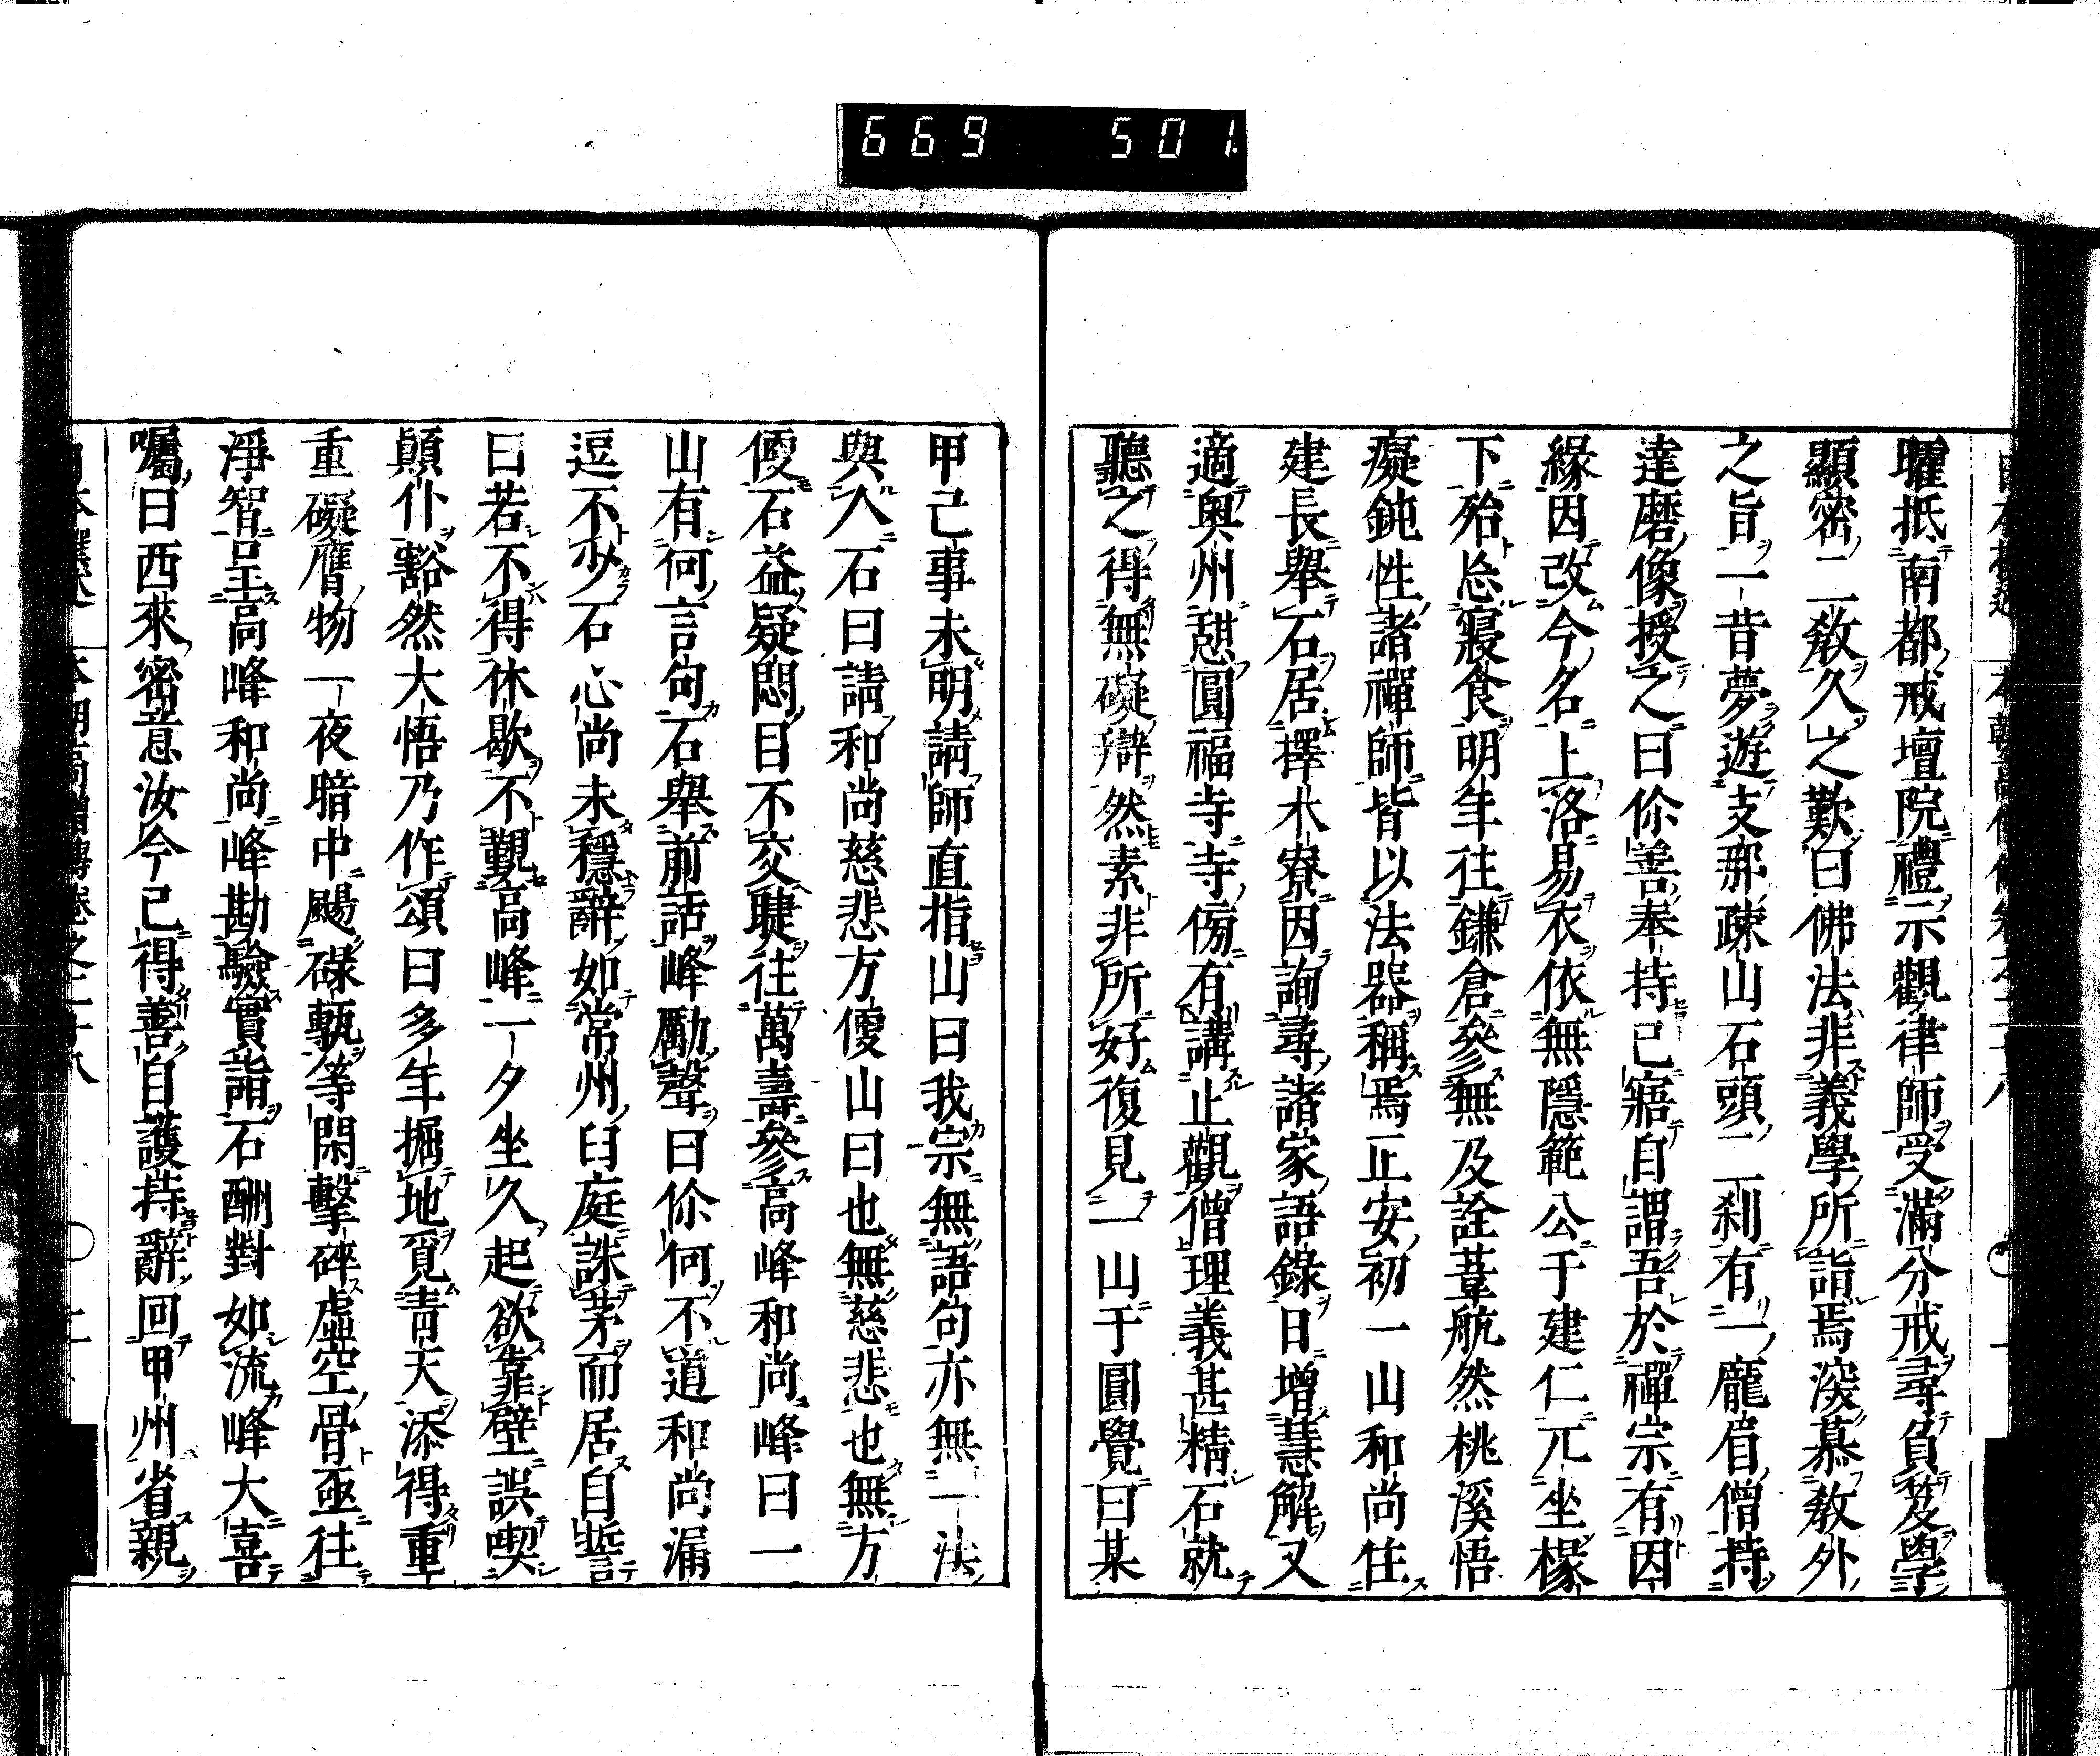 669 501.
曜抵南都戒壇院禮示觀律師受滿分戒尋負笈學
顯密二教久之歎曰佛法非義學所詣焉深慕教外
之旨一昔夢遊支那疎山石頭二刹有一龐眉僧持
達磨像授之曰你善奉持已寤自謂吾於禪宗有因
緣因改今名上洛易衣依無隱範公于建仁兀坐椽
下殆忘寢食明年往鎌倉參無及詮葦航然桃溪悟
癡鈍性諸禪師皆以法器稱焉正安初一山和尚住
建長舉石居擇木寮因詢尋諸家語錄日增慧解又
適奧州憇圓福寺寺傍有講止觀僧理義甚精石就
聽之得無礙辯然素非所好復見一山于圓覺曰某
甲己事未明請師直指山曰我宗無語句亦無一法
與人石曰請和尚慈悲方便山曰也無慈悲也無方
便石益疑悶目不交睫往萬壽參高峰和尚峰曰一
山有何言句石舉前話峰勵聲曰你何不道和尚漏
逗不少石心尚未穩辭如常州臼庭誅茅而居自誓
曰若不得休歇不覲高峰一夕坐久起欲靠壁誤喫
顛仆豁然大悟乃作頌曰多年掘地覓青天添得重
重礙膺物一夜暗中颺碌甎等閑擊碎虛空骨亟往
淨智呈高峰和尚峰勘驗實詣石酬對如流峰大喜
囑曰西來密意汝今已得善自護持辭回甲州省親
本朝高僧傳卷之二十八